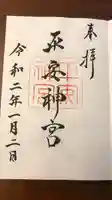 奉拝
平安神宮
令和二年一月二日